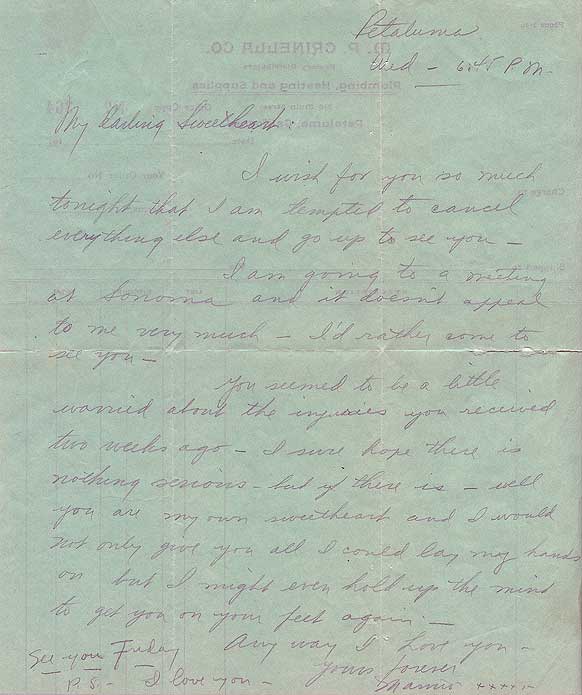 Petaluma
Wed - 6:45 P.M.
My darling Sweetheart:
I wish for you so much
tonight that I am tempted to cancel
everything else and go up to see you -
I am going to a meeting
at Sonoma and it doesn't appeal
to me very much - I'd rather come to
see you -
You seemed to be a little
worried about the injuries you received
two weeks ago - I sure hope there is
nothing serious - but if there is - well
you are my own sweetheart and I would
not only give you all I could lay my hands
on but I might even hold up the mint
to get you on your feet again. -
Any way I love you -
See you Friday
Yours forever
P.S. - I love you -
xxxxx
M. P. GRINELLA CO.
Plumbing, Heating and Supplies
Main Street
Petaluma,
Your Order No.
Charge to